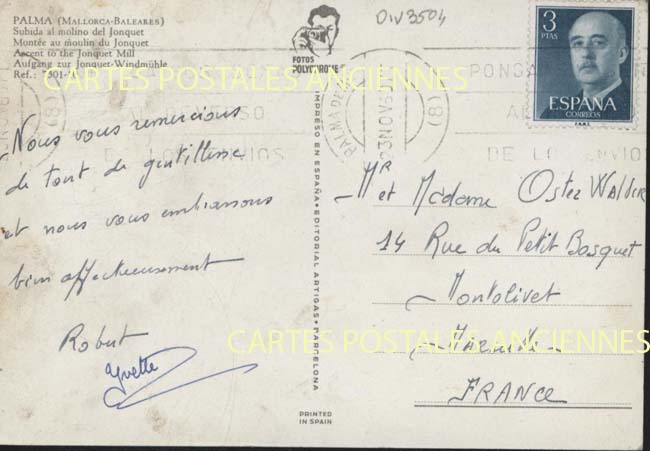 PALMA (MALLORCA-BALEARES)
Subida al molino del Jonquet
Montée au moulin du Jonquet
Ascent to the Jonquet Mill
Aufgang zur Jonquet-Windmühle
Ref.: 7501-
DIV3504
FOTOS
POLYCHROME
3
PTAS
ESPAÑA
CORREOS
PALMA DE
23 NOV 6
(8)
PONGA
DE LO ENVIO
CARTES POSTALES ANCIENNES
Nous vous remercions
de tout de gentillesse
et nous vous embrassons
bien affectueusement
Robert
Yvette
IMPRESO EN ESPAÑA • EDITORIAL ARTIGAS • BARCELONA
PRINTED
IN SPAIN
Mr et Madame Oster Walder
14 Rue du Petit Bosquet
Montolivet
CARTES POSTALES ANCIENNES
Marseille
FRANCE